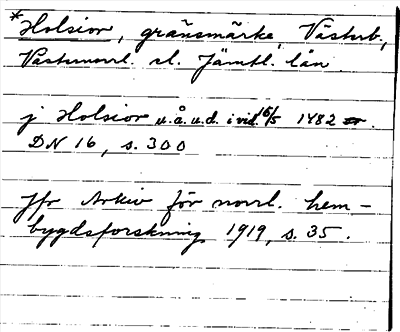 *Holsior, gränsmärke, Västerb.,
Västernorrl. el. Jämtl. län
j Holsior u.å.u.d. i vid. 16/5 1482 or.
DN 16, s. 300
Jfr Arkiv för norrl. hem-
bygdsforskning 1919, s. 35.